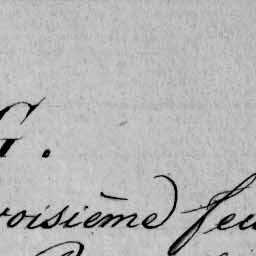 G.
roisième feu